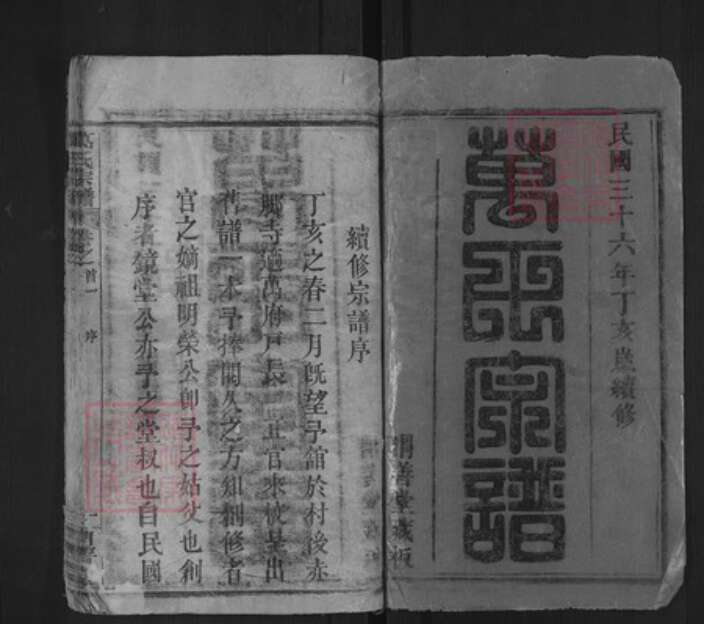 民國三十六年丁亥歲續修
萬氏宗譜
善堂藏板
續修宗譜序
丁亥之春二月既望予館於村後赤
鄉寺適萬府戶長正官來校是出
舊譜一本予捧閱久之方知創修者
官之嫡祖明榮公卽予之姑丈也創
序者鏡堂公亦予之堂叔也自民國
萬氏宗譜
卷之首一
序